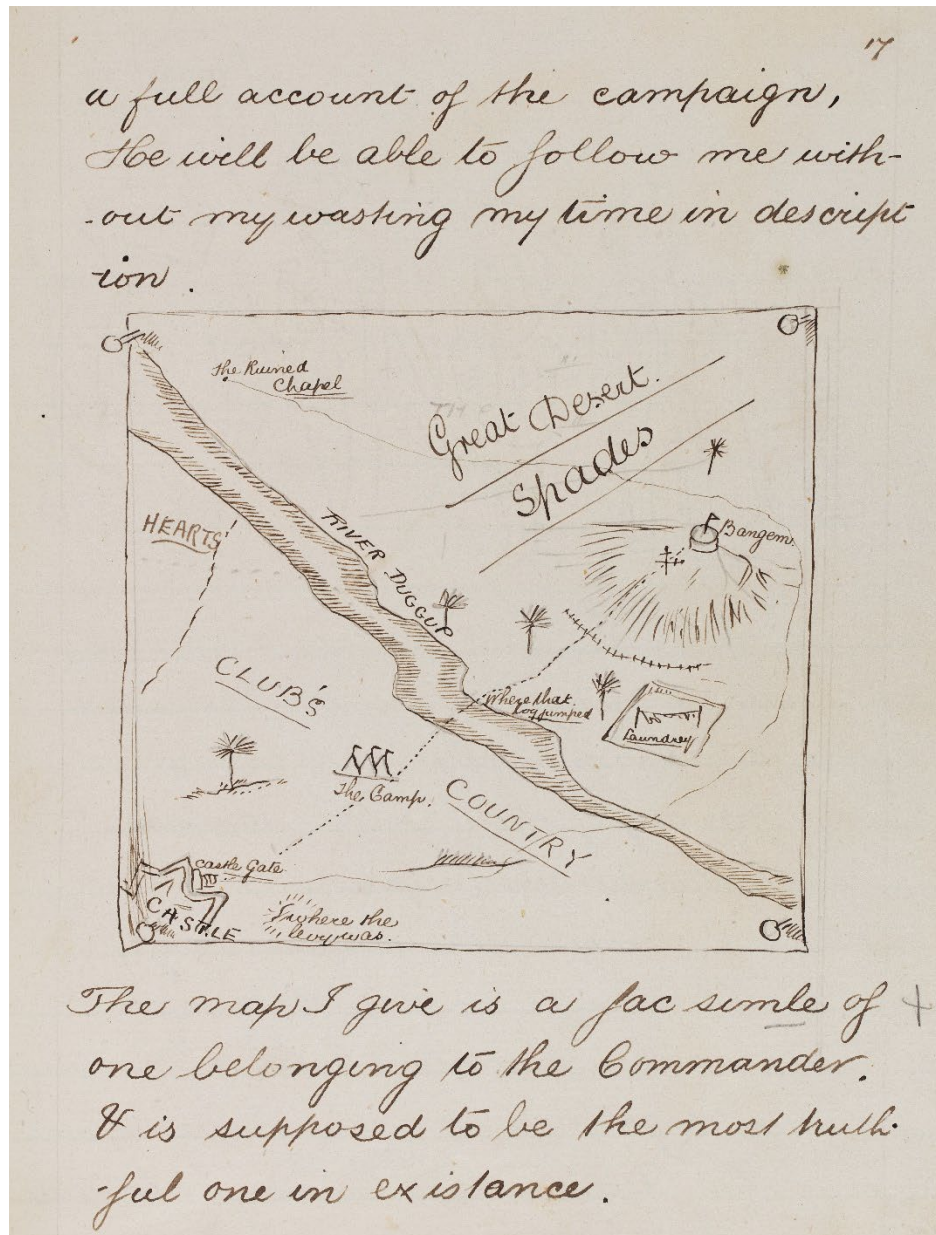 17
a full account of the campaign,
He will be able to follow me with-
-out my wasting my time in descript
tion.
The Ruined
Chapel
Great Desert.
Spades
HEARTS'
Bangem.
RIVER DUGGUP
CLUB'S
Where that
dog jumped
Laundrey
The Camp.
COUNTRY
Castle Gate
CASTLE
where the
levy was.
The map I give is a fac simle of +
one belonging to the Commander.
& is supposed to be the most truth-
-ful one in existance.